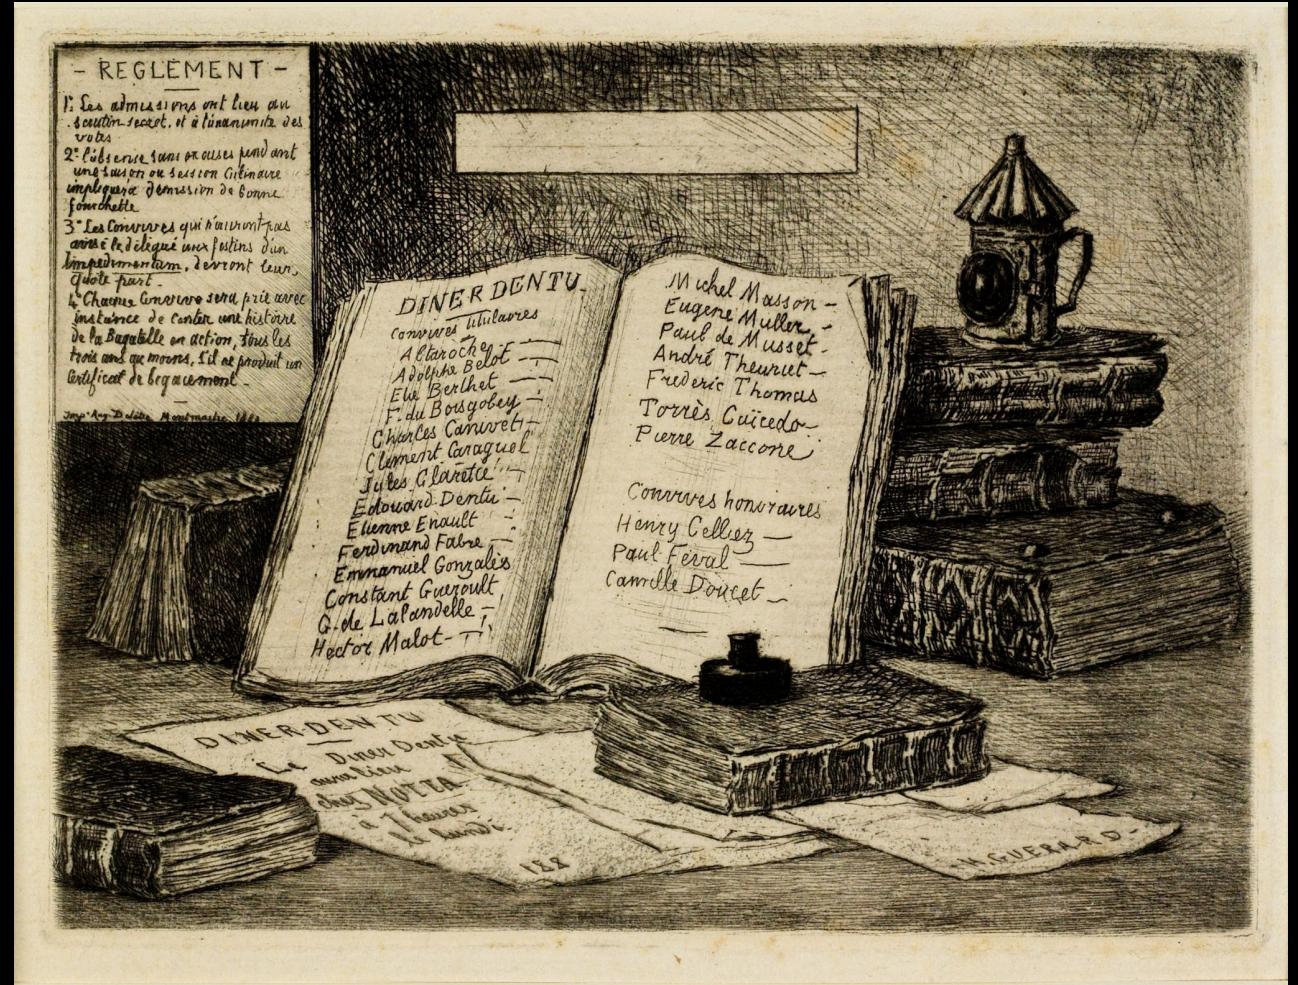 - REGLEMENT -
1° Les admissions ont lieu au
scrutin secret, et à l'unanimité des
votes
2° l'absence sans excuses pendant
une saison ou session Culinaire
impliquera démission de bonne
fourchette
3° Les Convives qui n'auront pas
avisé le délégué aux festins d'un
Impedimentum, devront leur
quote part.
4° Chaque Convive sera prié avec
instance de conter une histoire
de la Bagatelle en action, tous les
trois ans au moins, s'il ne produit un
Certificat de begaiement.
Imp. Aug. Delâtre Montmartre
DINER DENTU
Convives titulaires
Altaroche
Adolphe Belot
Elie Berthet
F. du Boisgobey
Charles Canivet
Clément Caraguel
Jules Claretie
Edouard Dentu
Etienne Enault
Ferdinand Fabre
Emmanuel Gonzalès
Constant Gueroult
G. de Lalandelle
Hector Malot
Michel Masson
Eugene Muller
Paul de Musset
André Theuriet
Frederic Thomas
Torrès Caïcedo
Pierre Zaccone
Convives honoraires
Henry Celliez
Paul Féval
Camille Doucet
DINER DENTU
Le Diner Dentu
aura lieu
chez NOTTA
à 7 heures
188
H. GUERARD